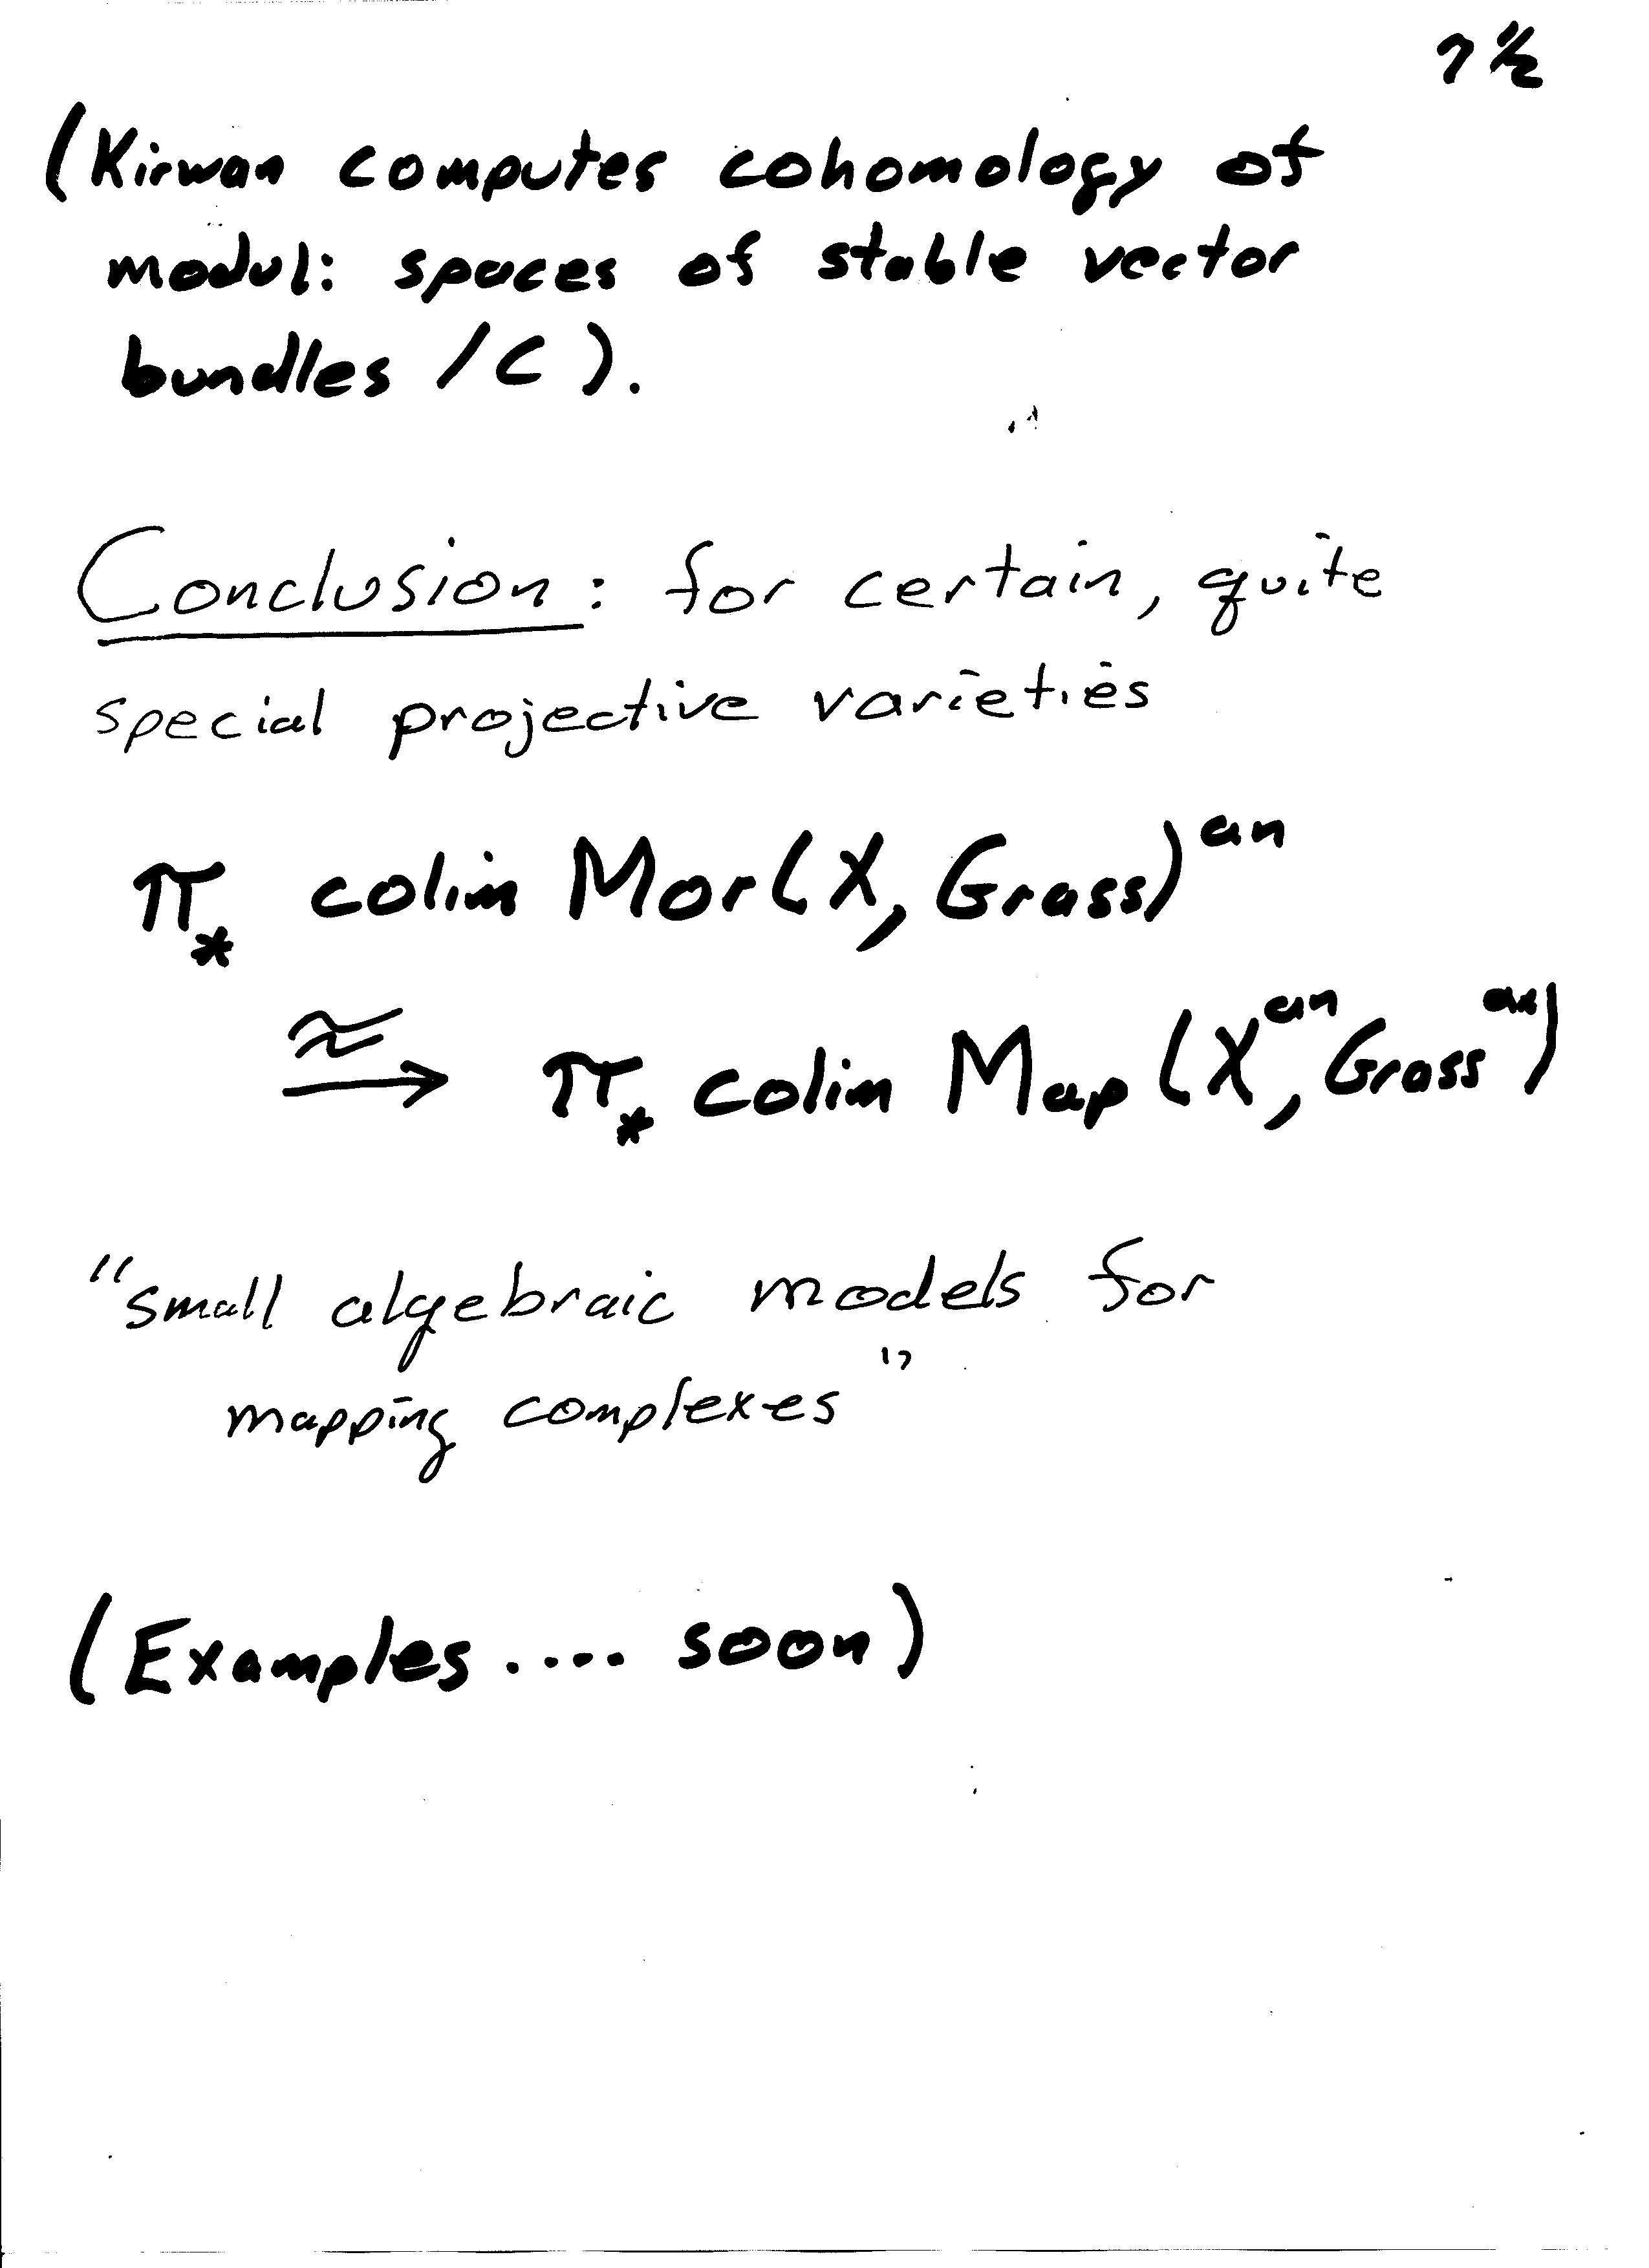 7 1/2
(Kirwan computes cohomology of
moduli spaces of stable vector
bundles / C).
Conclusion: for certain, quite
special projective varieties
π_* colim Mor(X, Grass)^an
≈→ π_* colim Map(X^an, Grass^an)
"small algebraic models for
mapping complexes"
(Examples .... soon)